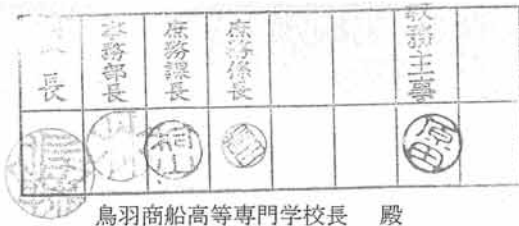 校長
事務部長
庶務課長
庶務係長
教務主事
桐山
原田
鳥羽商船高等専門学校長 殿